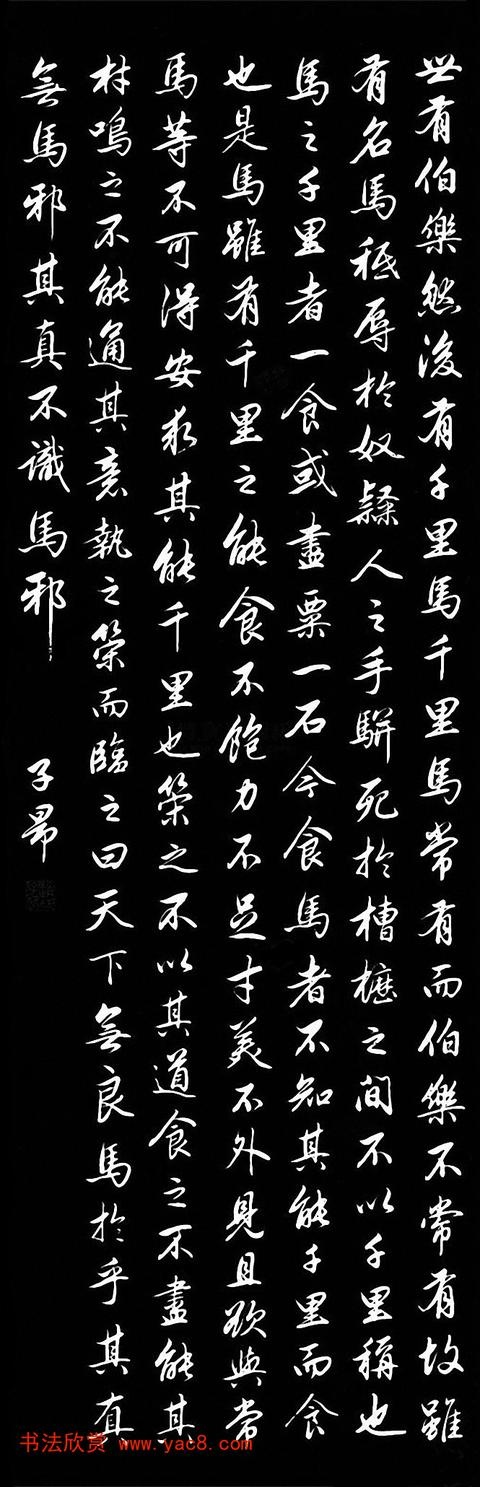 世有伯樂然後有千里馬千里馬常有而伯樂不常有故雖
有名馬秖辱於奴隸人之手駢死於槽櫪之間不以千里稱也
馬之千里者一食或盡粟一石今食馬者不知其能千里而食
也是馬雖有千里之能食不飽力不足才美不外見且欲與常
馬等不可得安求其能千里也策之不以其道食之不盡能其
材鳴之不能通其意執之策而臨之曰天下無良馬於乎其真
無馬邪其真不識馬邪
子昂
书法欣赏 www.yac8.com